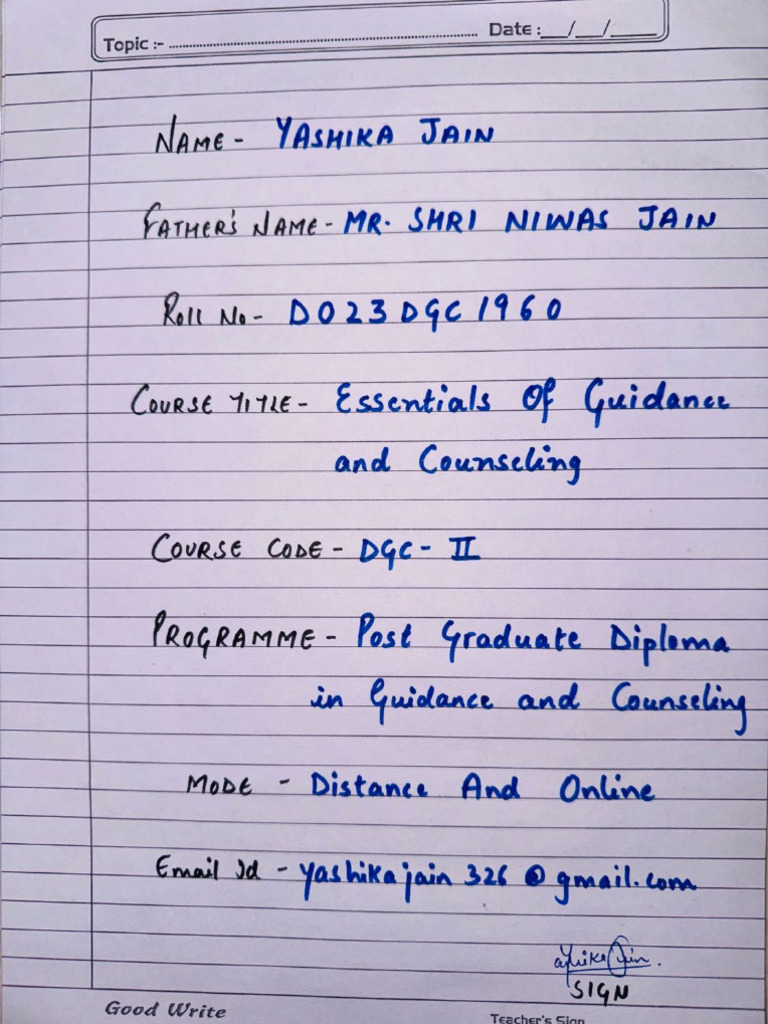 Topic :- ........................................ Date :__/__/____
NAME - YASHIKA JAIN
FATHER'S NAME - MR. SHRI NIWAS JAIN
Roll No - D023DGC1960
COURSE TITLE - Essentials Of Guidance
and Counseling
COURSE CODE - DGC - II
PROGRAMME - Post Graduate Diploma
in Guidance and Counseling
MODE - Distance And Online
Email Id - yashikajain326@gmail.com
SIGN
Good Write
Teacher's Sign